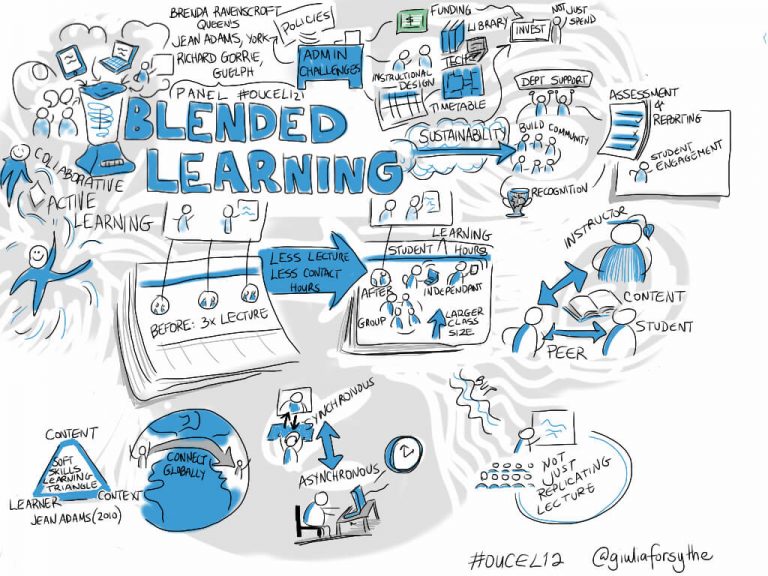 BRENDA RAVENSCROFT
QUEEN'S
JEAN ADAMS, YORK
RICHARD GORRIE,
GUELPH
PANEL #OUCEL12
POLICIES
ADMIN
CHALLENGES
$
FUNDING
LIBRARY
TECH
INSTRUCTIONAL
DESIGN
TIMETABLE
INVEST
NOT JUST
SPEND
BLENDED
LEARNING
SUSTAINABILITY
DEPT SUPPORT
BUILD COMMUNITY
RECOGNITION
ASSESSMENT
&
REPORTING
STUDENT
ENGAGEMENT
COLLABORATIVE
ACTIVE
LEARNING
BEFORE: 3x LECTURE
LESS LECTURE
LESS CONTACT
HOURS
LEARNING
STUDENT HOURS
AFTER
INDEPENDANT
GROUP
LARGER
CLASS
SIZE
INSTRUCTOR
CONTENT
STUDENT
PEER
CONTENT
SOFT
SKILLS
LEARNING
TRIANGLE
LEARNER
CONTEXT
JEAN ADAMS (2010)
CONNECT
GLOBALLY
SYNCHRONOUS
ASYNCHRONOUS
BUT
NOT
JUST
REPLICATING
LECTURE
#OUCEL12
@giuliaforsythe